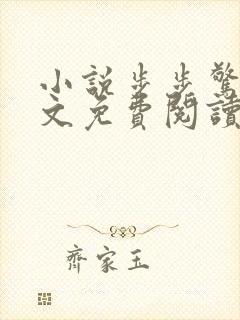 小說步步驚
文免費閱讀
齊家玉